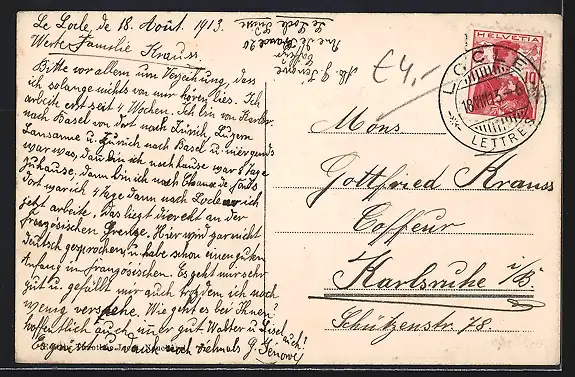 Le Locle, de 18. Août. 1913.
Werte Familie Krauss.
Bitte vor allem um Verzeihung, dass
ich so lange nichts von mir hören lies. Ich
arbeite erst seit 4 Wochen. Ich bin von Karlsr.
nach Basel von dort nach Zürich, Luzern
Lausanne u. Zürich nach Basel u. nirgends
war was, dann bin ich noch hause war 8 Tage
zuhause, dann bin ich nach Chaux de fonds
dort war ich 4 Tage dann nach Locle wo ich
jetzt arbeite. Das liegt direckt an der
französischen Grenze. Hier wird gar nicht
Deutsch gesprochen, u. habe schon einen guten
Anfang in französischen. Es geht mir sehr
gut u. gefällt mir auch trotzdem ich noch
wenig verstehe. Wie geht es bei Ihnen?
Hoffentlich auch immer gut Walter u. Lisel
auch!
Es grüsst u. dankt noch vielmals G. Jenowe
Abs. G. Jenowe
Coiffeur
Rue de France 20
Le Locle Suisse
€4,-
HELVETIA
10
LE LOCLE
18.VIII.13
LETTRES
Mons
Gottfried Krauss
Coffeur
Karlsruhe i/B.
Schützenstr. 78.